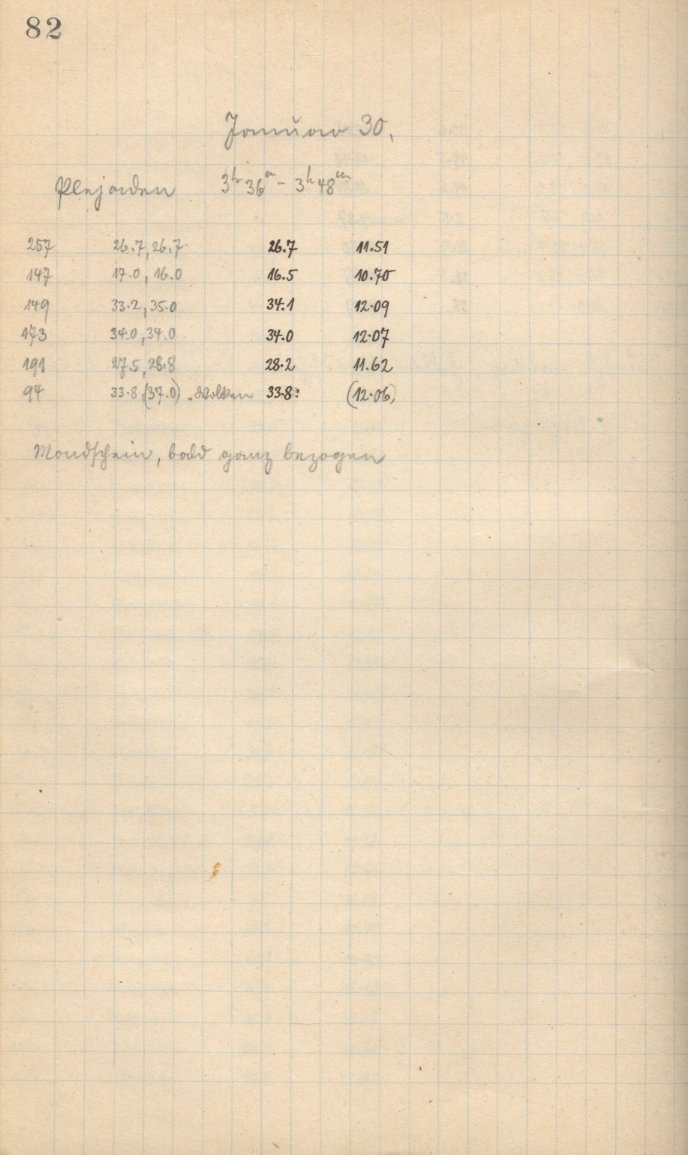 82
Januar 30.
Plejaden 3h 36m - 3h 48m
257 26.7, 26.7 26.7 11.51
147 17.0, 16.0 16.5 10.70
149 33.2, 35.0 34.1 12.09
173 34.0, 34.0 34.0 12.07
191 27.5, 28.8 28.2 11.62
94 33.8 (37.0) . Wolken 33.8: (12.06)
Mondschein, bald ganz bezogen